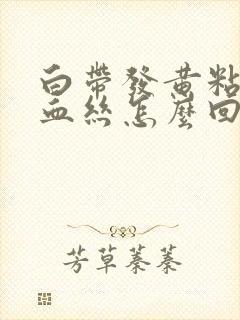 白帶發黃粘
血絲怎麼回
芳草蓁蓁